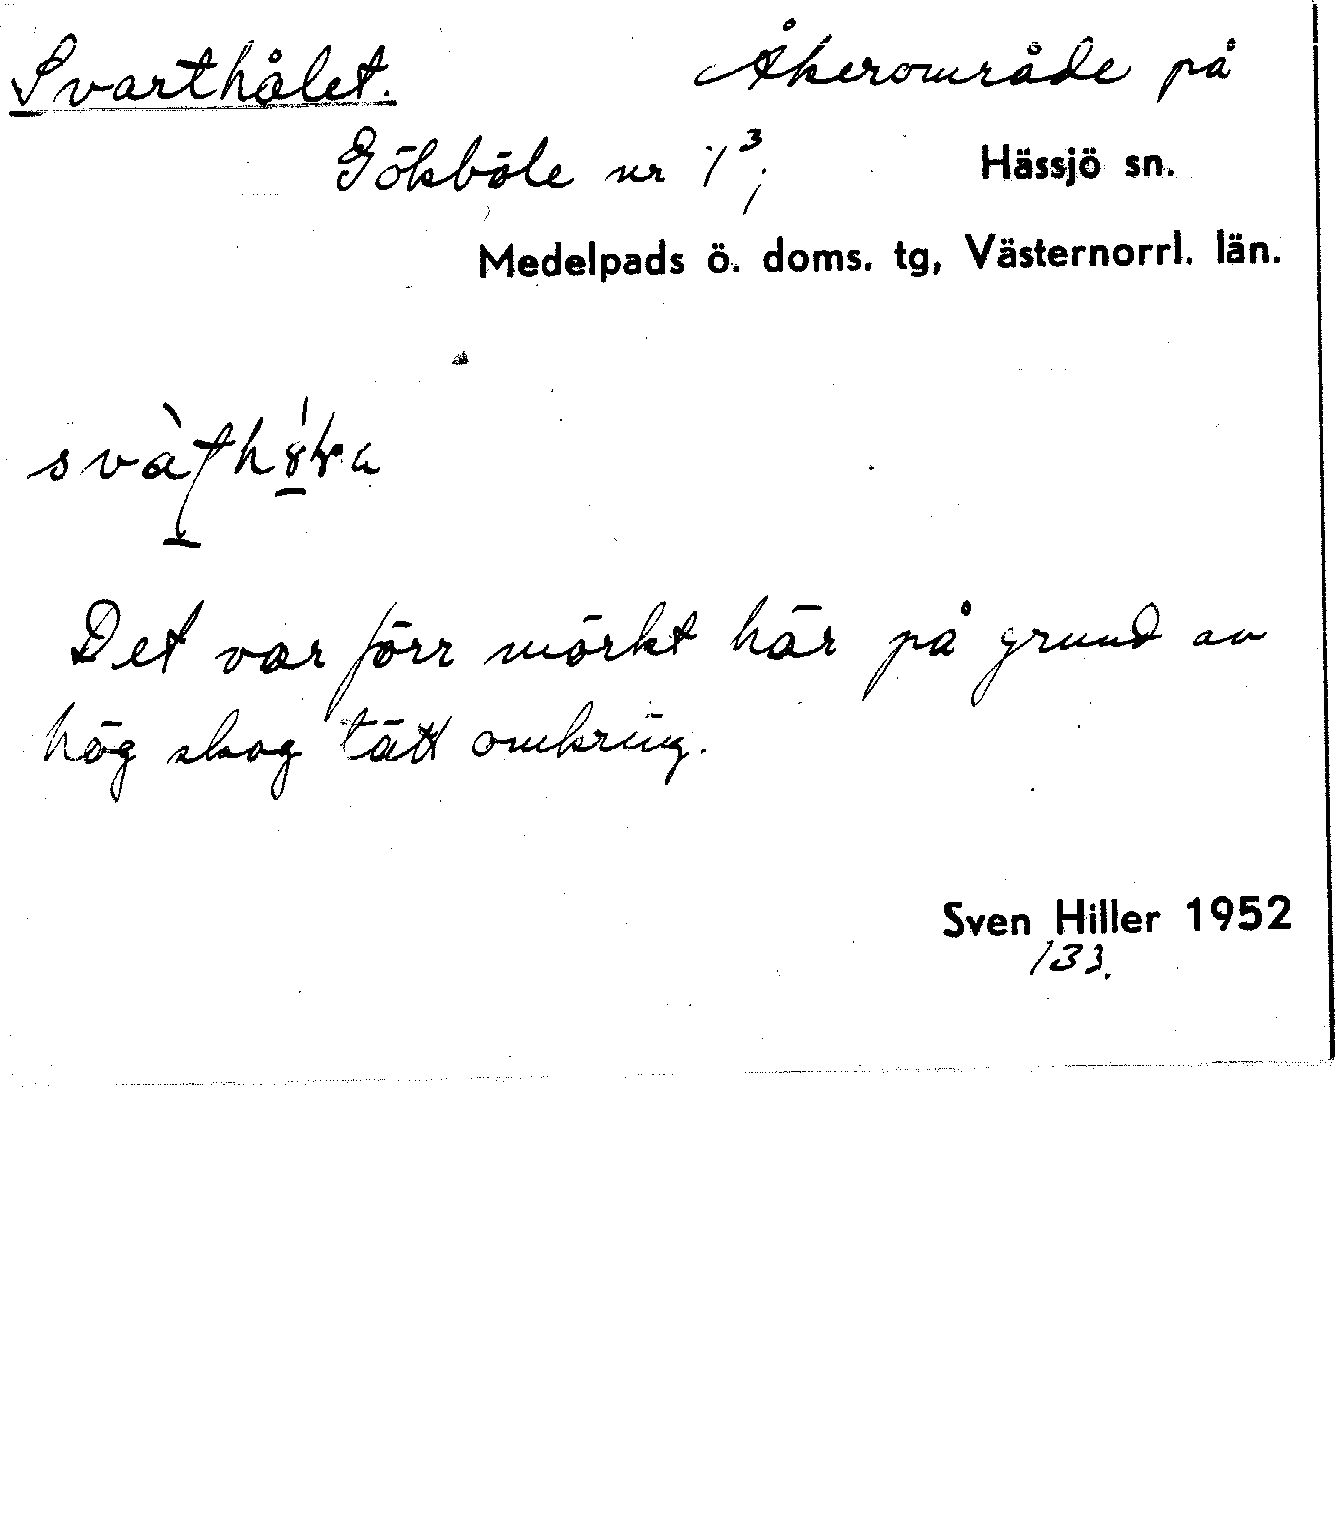 Svarthålet. Åkerområde på
Gökböle nr 1³, Hässjö sn.
Medelpads ö. doms. tg, Västernorrl. län.
Det var förr mörkt här på grund av
hög skog tätt omkring.
Sven Hiller 1952
133.